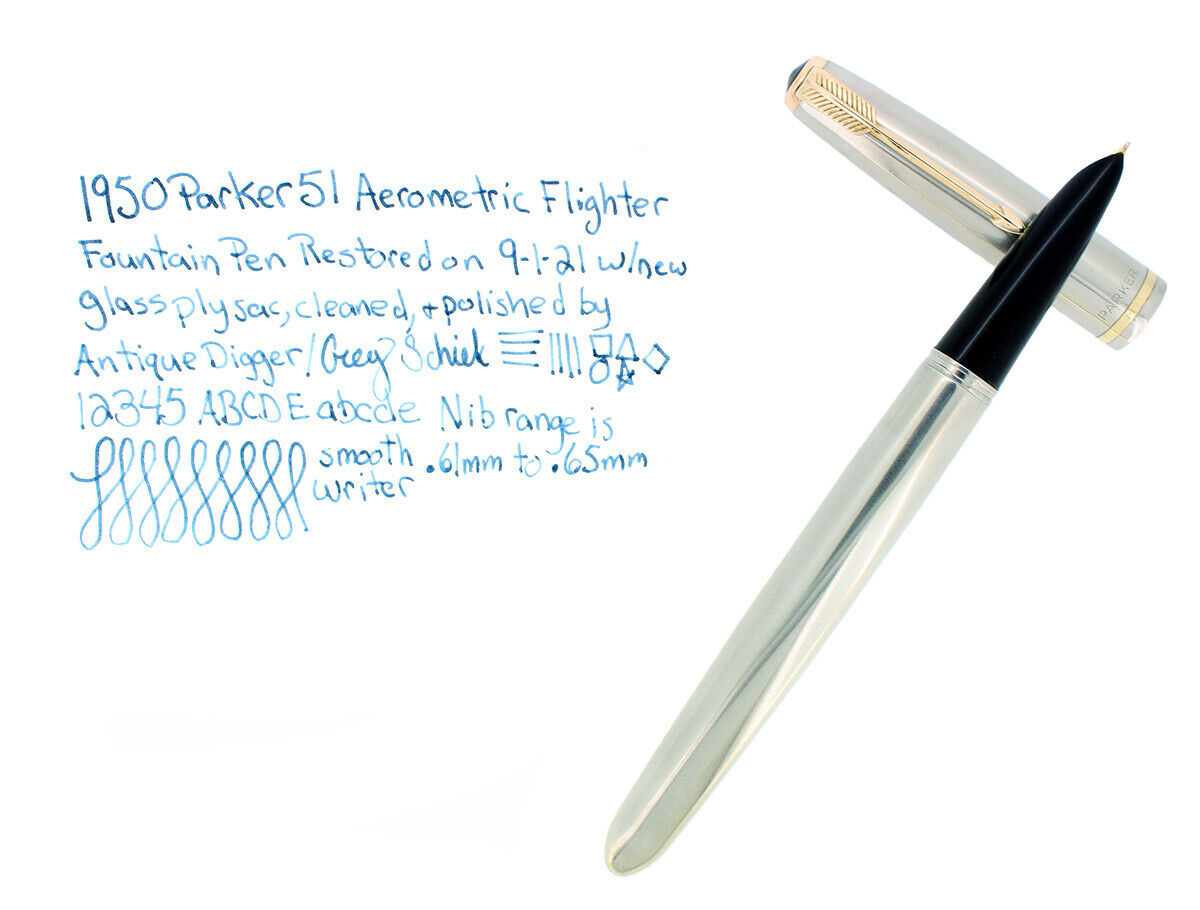 1950 Parker 51 Aerometric Flighter
Fountain Pen Restored on 9-1-21 w/new
glass ply sac, cleaned, + polished by
Antique Digger/
12345 ABCDE abcde Nib range is
smooth .61mm to .65mm
writer
PARKER